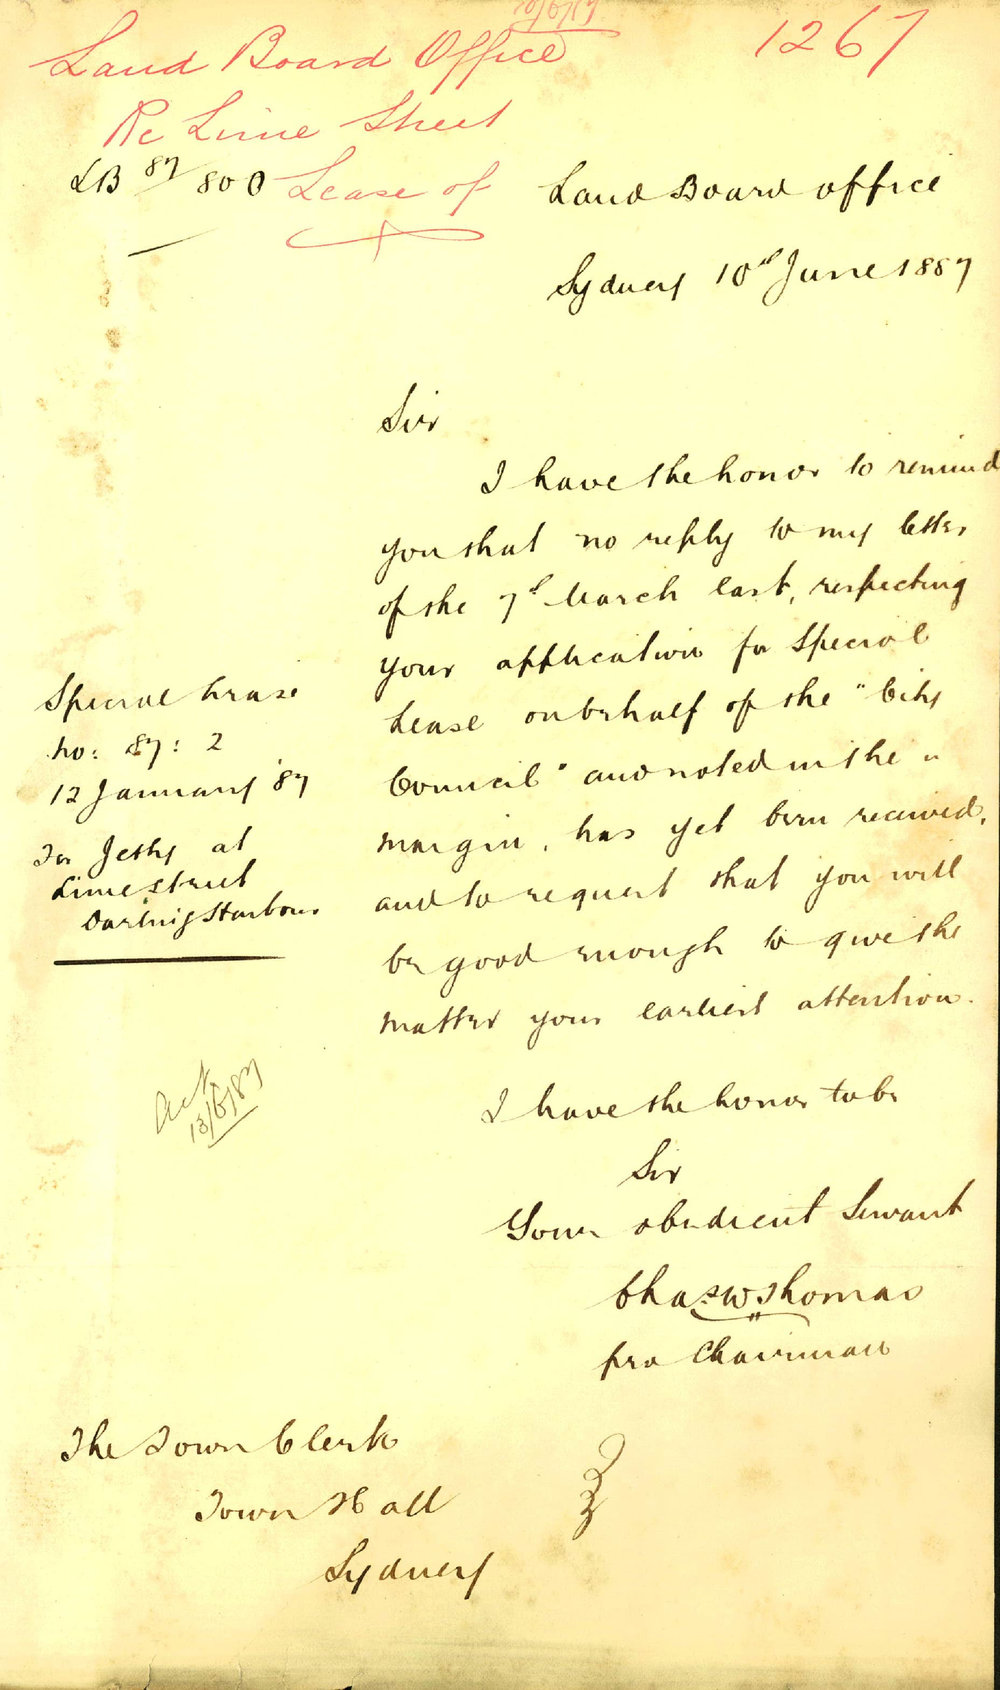 10/6/87
1267
Land Board Office
Re Lime Street
Lease of
LB 87/800
Land Board office
Sydney 10th June 1887
Sir
I have the honor to remind
you that no reply to my letter
of the 7th March last, respecting
your application for Special
Lease on behalf of the "City
Council" and noted in the "
margin, has yet been received,
and to request that you will
be good enough to give the
matter your earliest attention.
Special Lease
No: 87: 2
12 January '87
For Jetty at
Lime Street
Darling Harbour
13/6/87
I have the honor to be
Sir
Your obedient Servant
Chas W Thomas
pro Chairman
The Town Clerk
Town Hall
Sydney